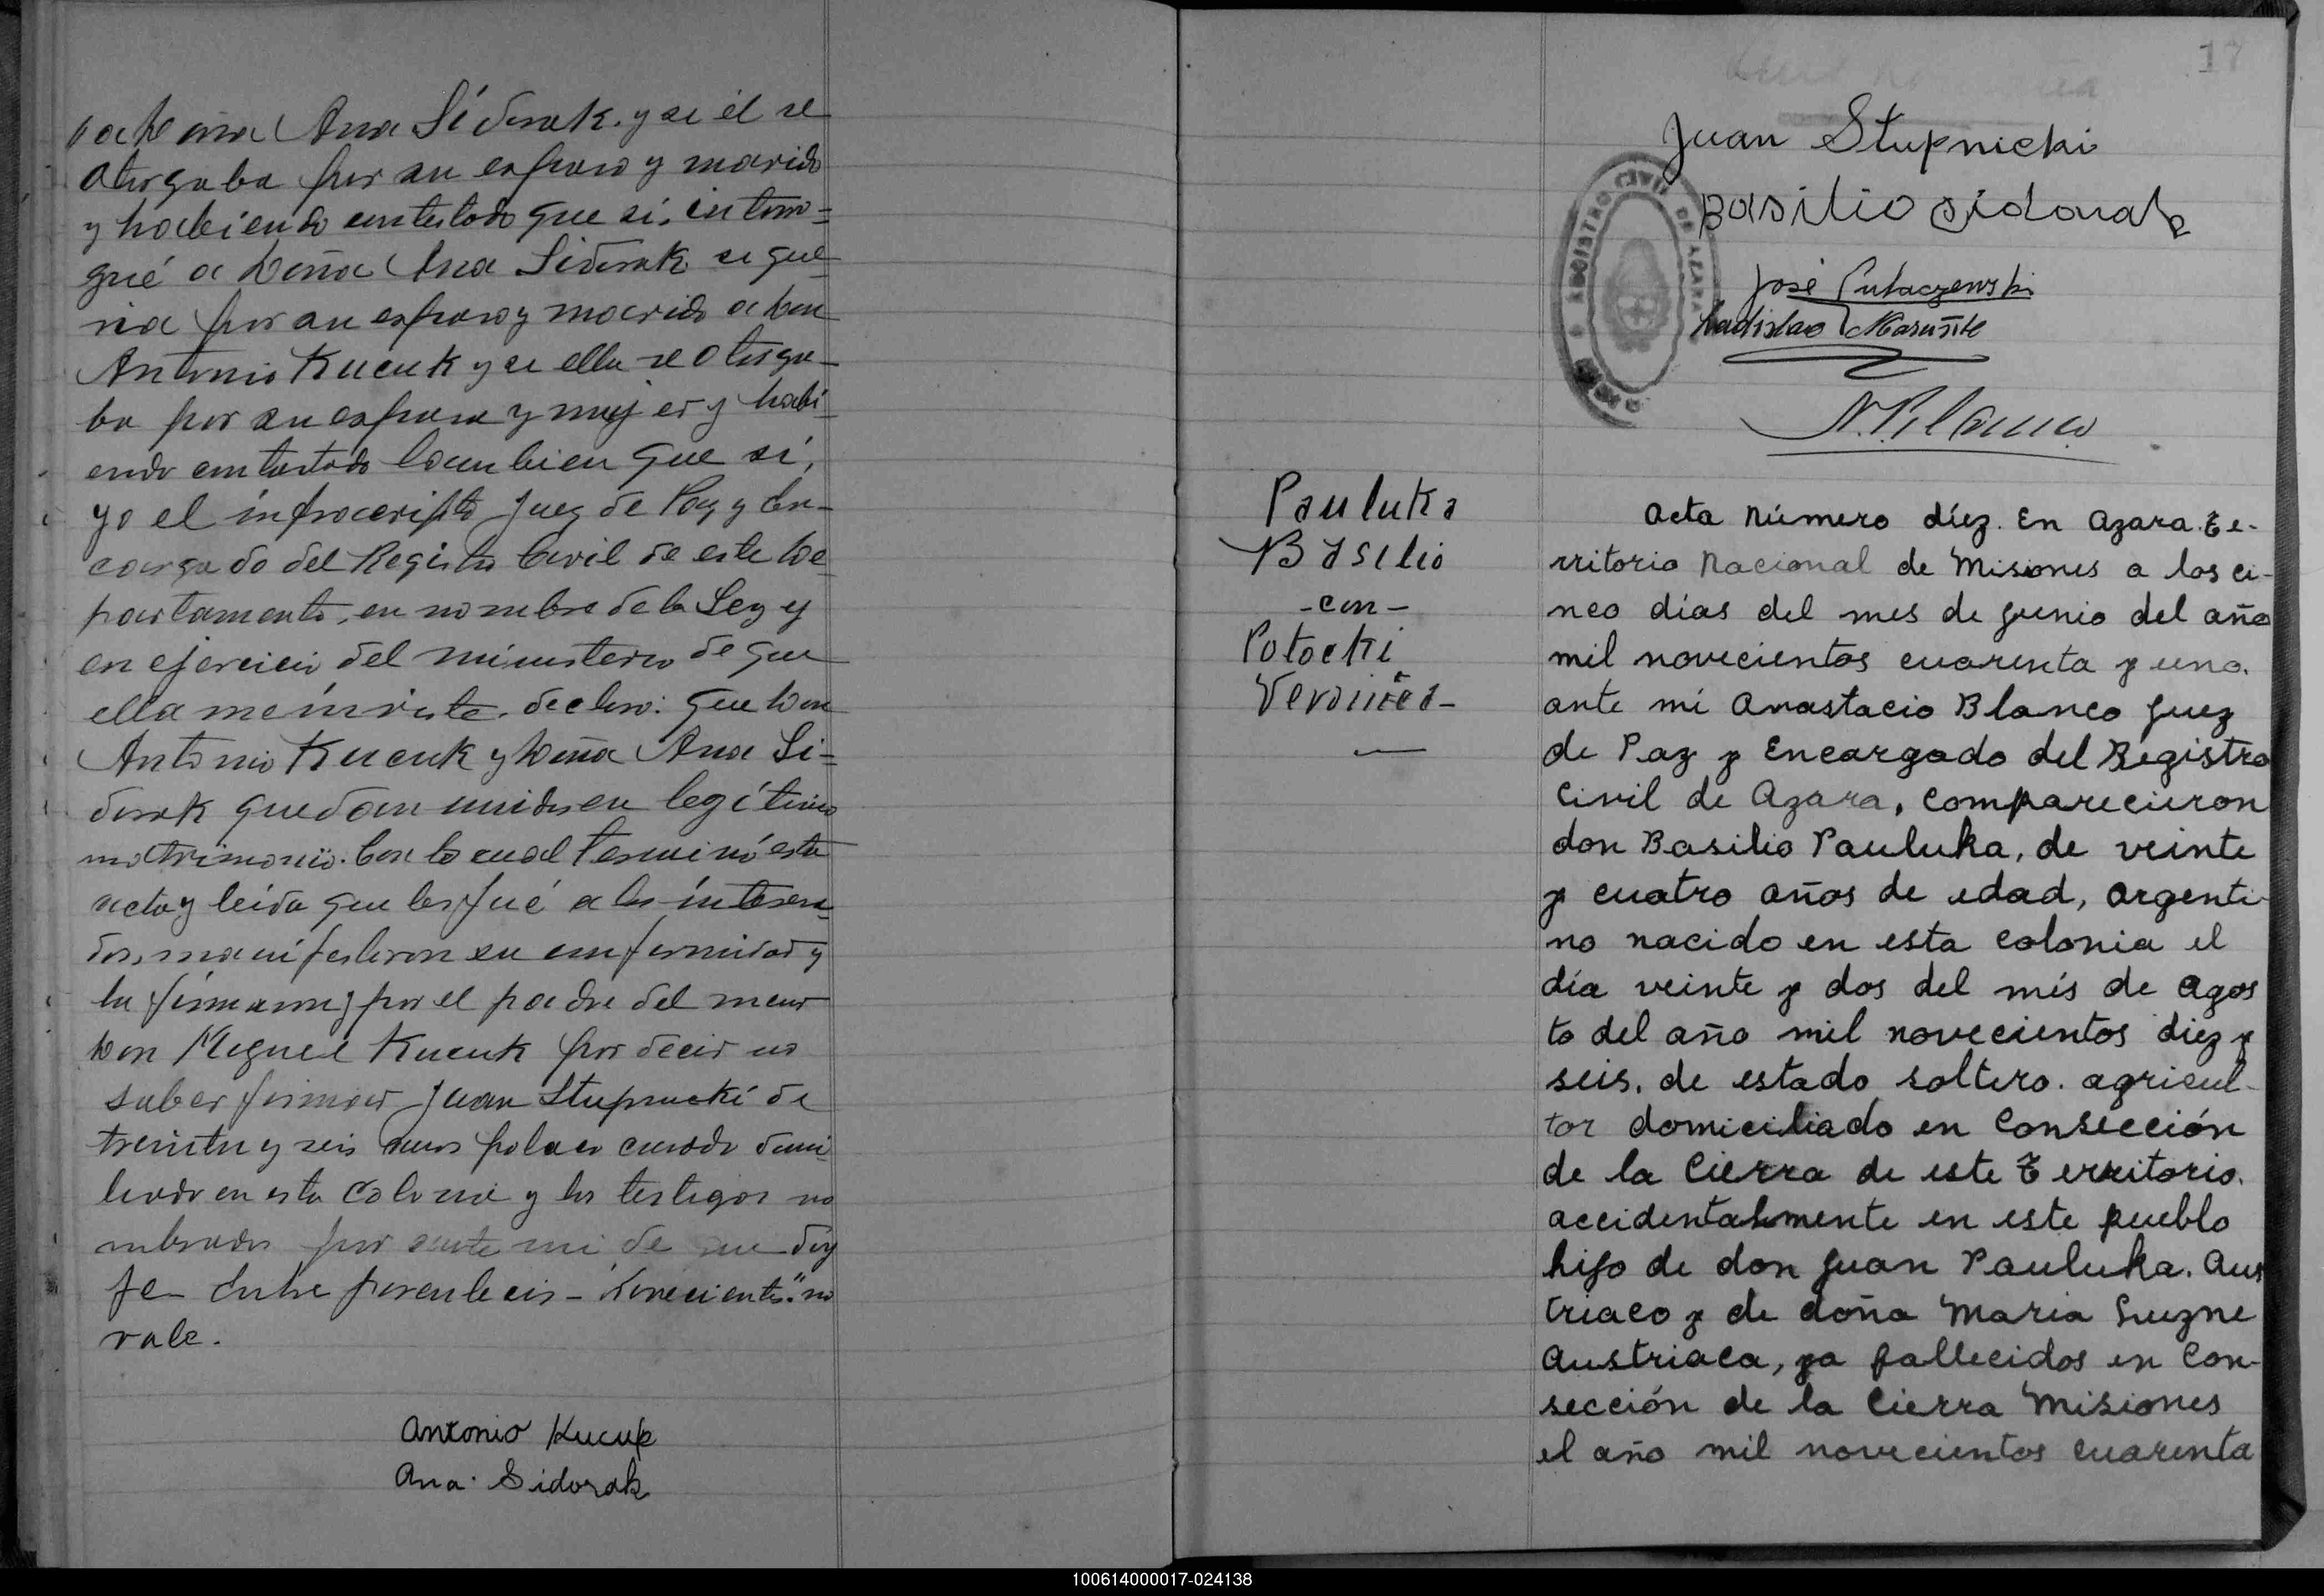 a doña Ana Siderak. y si él se
otorgaba por su esposo y marido
y habiendo contestado que si, interro=
gué a Doña Ana Siderak si que
ria por su esposo y marido a Don
Antonio Kucuk y si ella se otorga-
ba por su esposa y mujer y habi
endo contestado tambien que sí,
yo el infrascripto Juez de Paz y En-
cargado del Registro Civil de este De
partamento, en nombre de la Ley y
en ejercicio del ministerio de que
ella me inviste. declaro: que Don
Antonio Kucuk y Doña Ana Si=
derak quedan unidos en legítimo
matrimonio. Con lo cual terminó esta
acta y leida que les fué a los interesa
dos, manifestaron su conformidad y
la firmaron y por el padre del menor
Don Miguel Kucuk por decir no
saber firmar Juan Stupnicki de
treinta y seis años polaco casado domi
liado en esta Colonia y los testigos no
mbrados por ante mi de que doy
fe- Entre parentecis - "novecientos" no
vale.
Antonio Kucuk
Ana Sidorak
17
Juan Stupnicki
Basilio Sidorak
José
Ladislao
REGISTRO CIVIL DE AZARA
Pauluka
Basilio
-con-
Potocki
Veronica-
Acta Número díez. En Azara. Te-
rritorio Nacional de Misiones a los ci-
nco días del mes de junio del año
mil novecientos cuarenta y uno.
ante mí Anastacio Blanco Juez
de Paz y Encargado del Registro
Civil de Azara, comparecieron
don Basilio Pauluka, de veinte
y cuatro años de edad, argenti-
no nacido en esta colonia el
día veinte y dos del més de Agos
to del año mil novecientos diez y
seis, de estado soltero. agricul-
tor domiciliado en Consección
de la Cierra de este Territorio.
accidentalmente en este pueblo
hijo de don Juan Pauluka. Aus
triaco y de doña Maria Guzne
Austriaca, ya fallecidos en Con-
sección de la Cierra Misiones
el año mil novecientos cuarenta
100614000017-024138